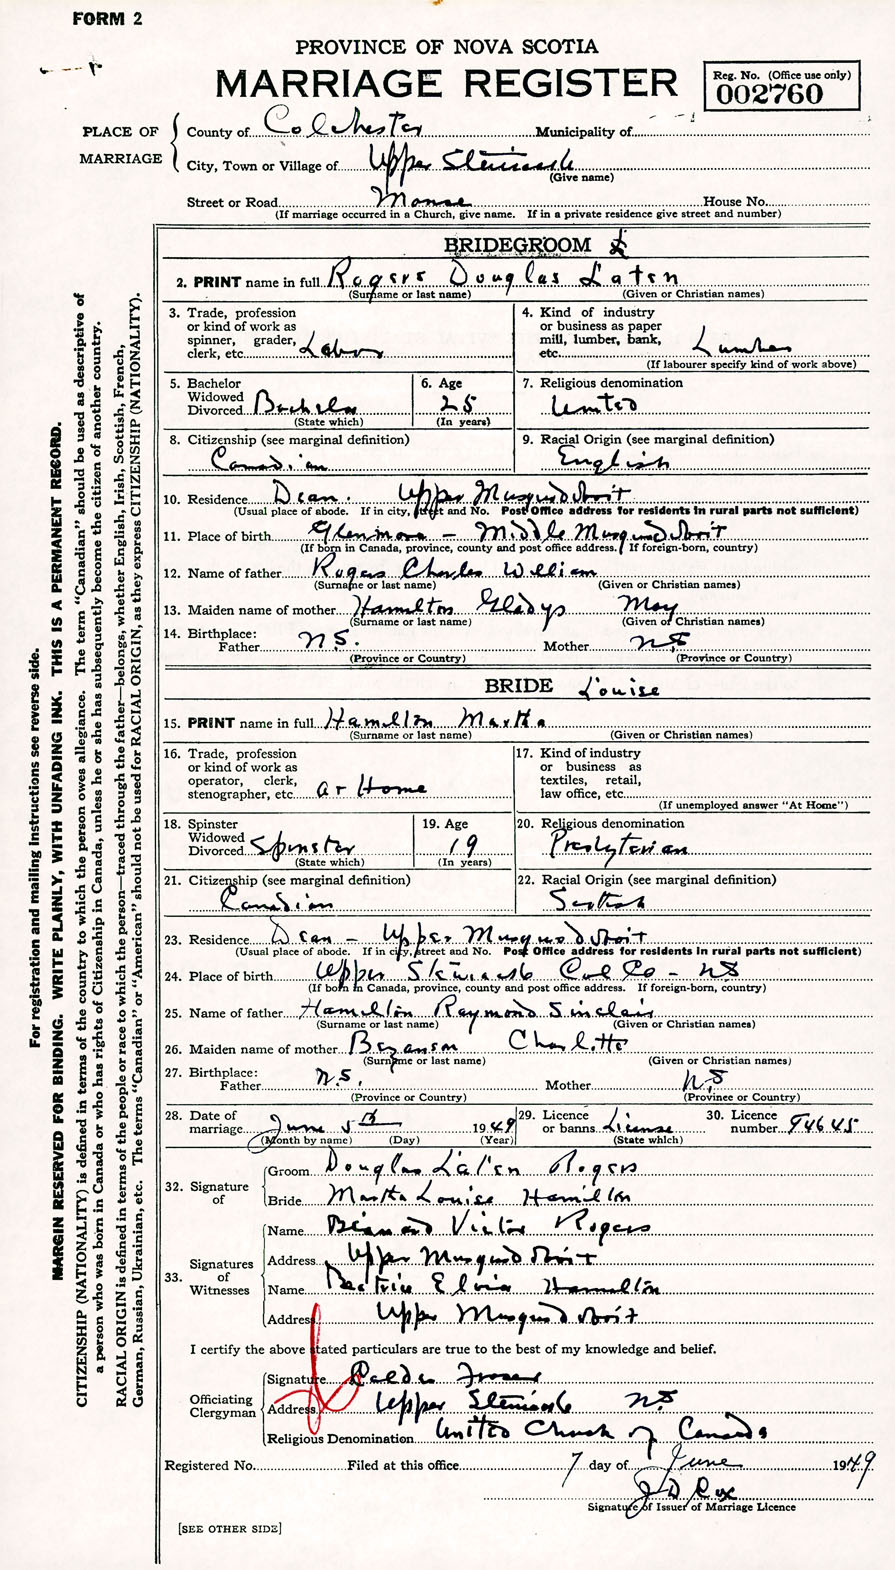 FORM 2
PROVINCE OF NOVA SCOTIA
MARRIAGE REGISTER
Reg. No. (Office use only)
002760
PLACE OF MARRIAGE
County of Colchester Municipality of
City, Town or Village of Upper Stewiacke
(Give name)
Street or Road Manse House No.
(If marriage occurred in a Church, give name. If in a private residence give street and number)
BRIDEGROOM
2. PRINT name in full Rogers Douglas
(Surname or last name) (Given or Christian names)
3. Trade, profession or kind of work as spinner, grader, clerk, etc. Labor
4. Kind of industry or business as paper mill, lumber, bank, etc. Lumber
(If labourer specify kind of work above)
5. Bachelor Widowed Divorced Bachelor
(State which)
6. Age 25
(In years)
7. Religious denomination United
8. Citizenship (see marginal definition)
Canadian
9. Racial Origin (see marginal definition)
English
10. Residence Dean. Upper Musquodoboit
(Usual place of abode. If in city, street and No. Post Office address for residents in rural parts not sufficient)
11. Place of birth Glenmore - Middle Musquodoboit
(If born in Canada, province, county and post office address. If foreign-born, country)
12. Name of father Rogers Charles William
(Surname or last name) (Given or Christian names)
13. Maiden name of mother Hamilton Gladys May
(Surname or last name) (Given or Christian names)
14. Birthplace: Father N.S. Mother NS
(Province or Country) (Province or Country)
BRIDE Louise
15. PRINT name in full Hamilton Martha
(Surname or last name) (Given or Christian names)
16. Trade, profession or kind of work as operator, clerk, stenographer, etc. at Home
17. Kind of industry or business as textiles, retail, law office, etc.
(If unemployed answer "At Home")
18. Spinster Widowed Divorced Spinster
(State which)
19. Age 19
(In years)
20. Religious denomination
Presbyterian
21. Citizenship (see marginal definition)
Canadian
22. Racial Origin (see marginal definition)
Scottish
23. Residence Dean - Upper Musquodoboit
(Usual place of abode. If in city, street and No. Post Office address for residents in rural parts not sufficient)
24. Place of birth Upper Stewiacke Col Co - NS
(If born in Canada, province, county and post office address. If foreign-born, country)
25. Name of father Hamilton Raymond Sinclair
(Surname or last name) (Given or Christian names)
26. Maiden name of mother Bezanson Charlotte
(Surname or last name) (Given or Christian names)
27. Birthplace: Father N.S. Mother NS
(Province or Country) (Province or Country)
28. Date of marriage June 5th 1949
(Month by name) (Day) (Year)
29. Licence or banns License
(State which)
30. Licence number 94645
32. Signature of
Groom Douglas Rogers
Bride Martha Louise Hamilton
33. Signatures of Witnesses
Name Bernard Victor Rogers
Address Upper Musquodoboit
Name Beatrice Hamilton
Address Upper Musquodoboit
I certify the above stated particulars are true to the best of my knowledge and belief.
Officiating Clergyman
Signature Fraser
Address Upper Stewiacke NS
Religious Denomination United Church of Canada
Registered No. Filed at this office 7 day of June 1949
J D Cox
Signature of Issuer of Marriage Licence
[SEE OTHER SIDE]
For registration and mailing instructions see reverse side.
MARGIN RESERVED FOR BINDING. WRITE PLAINLY, WITH UNFADING INK. THIS IS A PERMANENT RECORD.
CITIZENSHIP (NATIONALITY) is defined in terms of the country to which the person owes allegiance. The term "Canadian" should be used as descriptive of
a person who was born in Canada or who has rights of Citizenship in Canada, unless he or she has subsequently become the citizen of another country.
RACIAL ORIGIN is defined in terms of the people or race to which the person—traced through the father—belongs, whether English, Irish, Scottish, French,
German, Russian, Ukrainian, etc. The terms "Canadian" or "American" should not be used for RACIAL ORIGIN, as they express CITIZENSHIP (NATIONALITY).